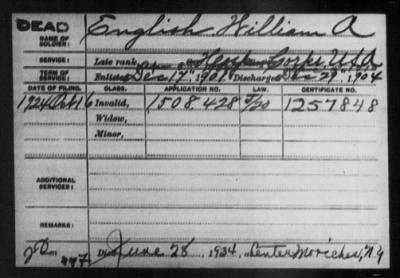 DEAD
English William A
NAME OF SOLDIER:
SERVICE: Late rank, Hosp. Corps, U.S.A
TERM OF SERVICE: Enlisted Dec 17", 1901, Discharged Dec 29", 1904
DATE OF FILING. CLASS. APPLICATION NO. LAW. CERTIFICATE NO.
1924 Oct 16 Invalid, 1508428 1257848
Widow,
Minor,
ADDITIONAL SERVICES:
REMARKS:
Died June 28, 1934, Center Moriches, N.Y